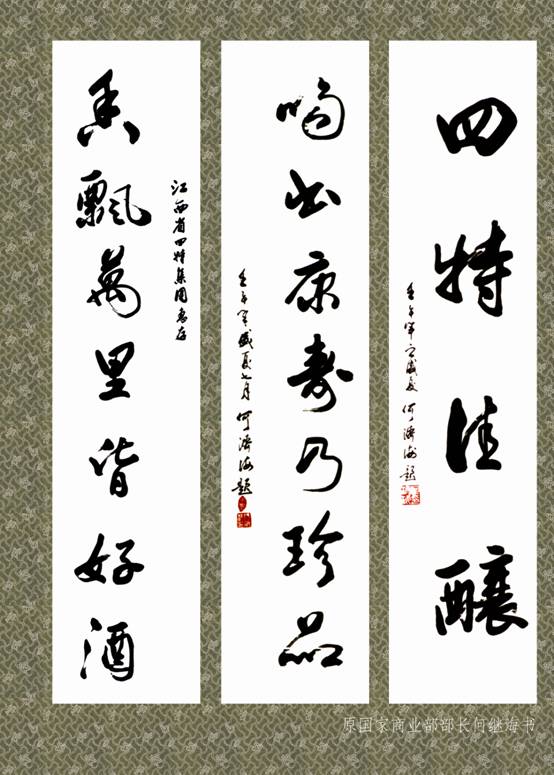 四特佳酿
壬午年之盛夏 何济海题
喝出康寿乃珍品
壬午年盛夏七月 何济海题
江西省四特集团惠存
香飘萬里皆好酒
原国家商业部部长何继海书